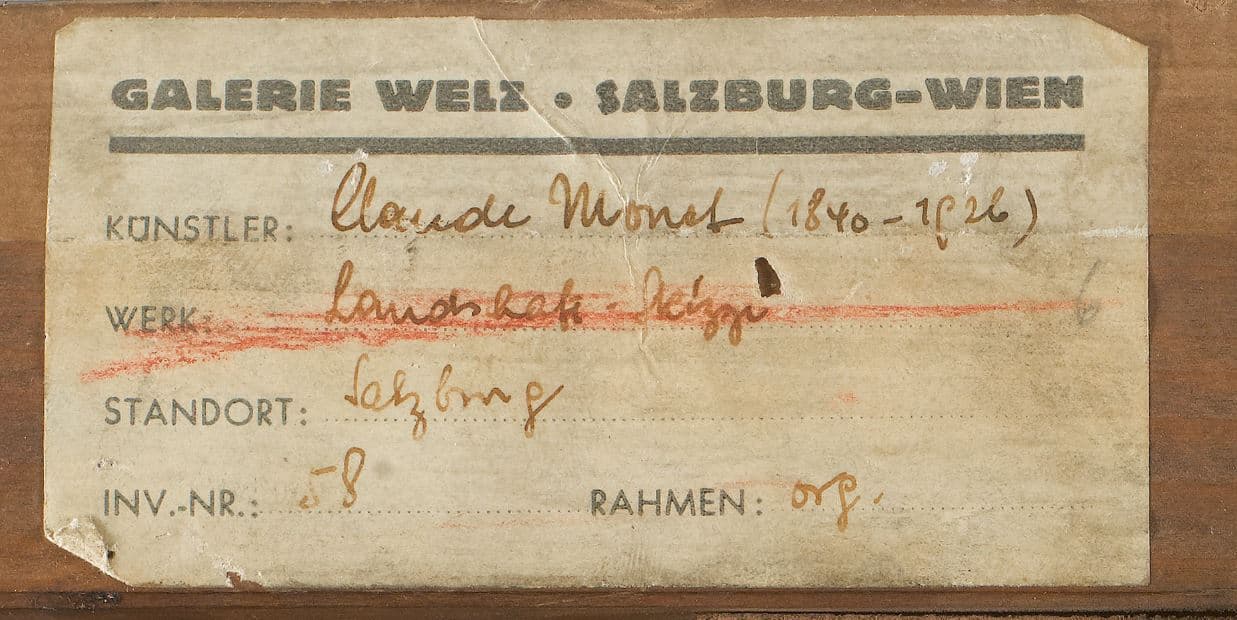 GALERIE WELZ • SALZBURG-WIEN
KÜNSTLER: Claude Monet (1840-1926)
WERK: Landschaft-Skizze
STANDORT: Salzburg
INV.-NR.: 58 RAHMEN: org.